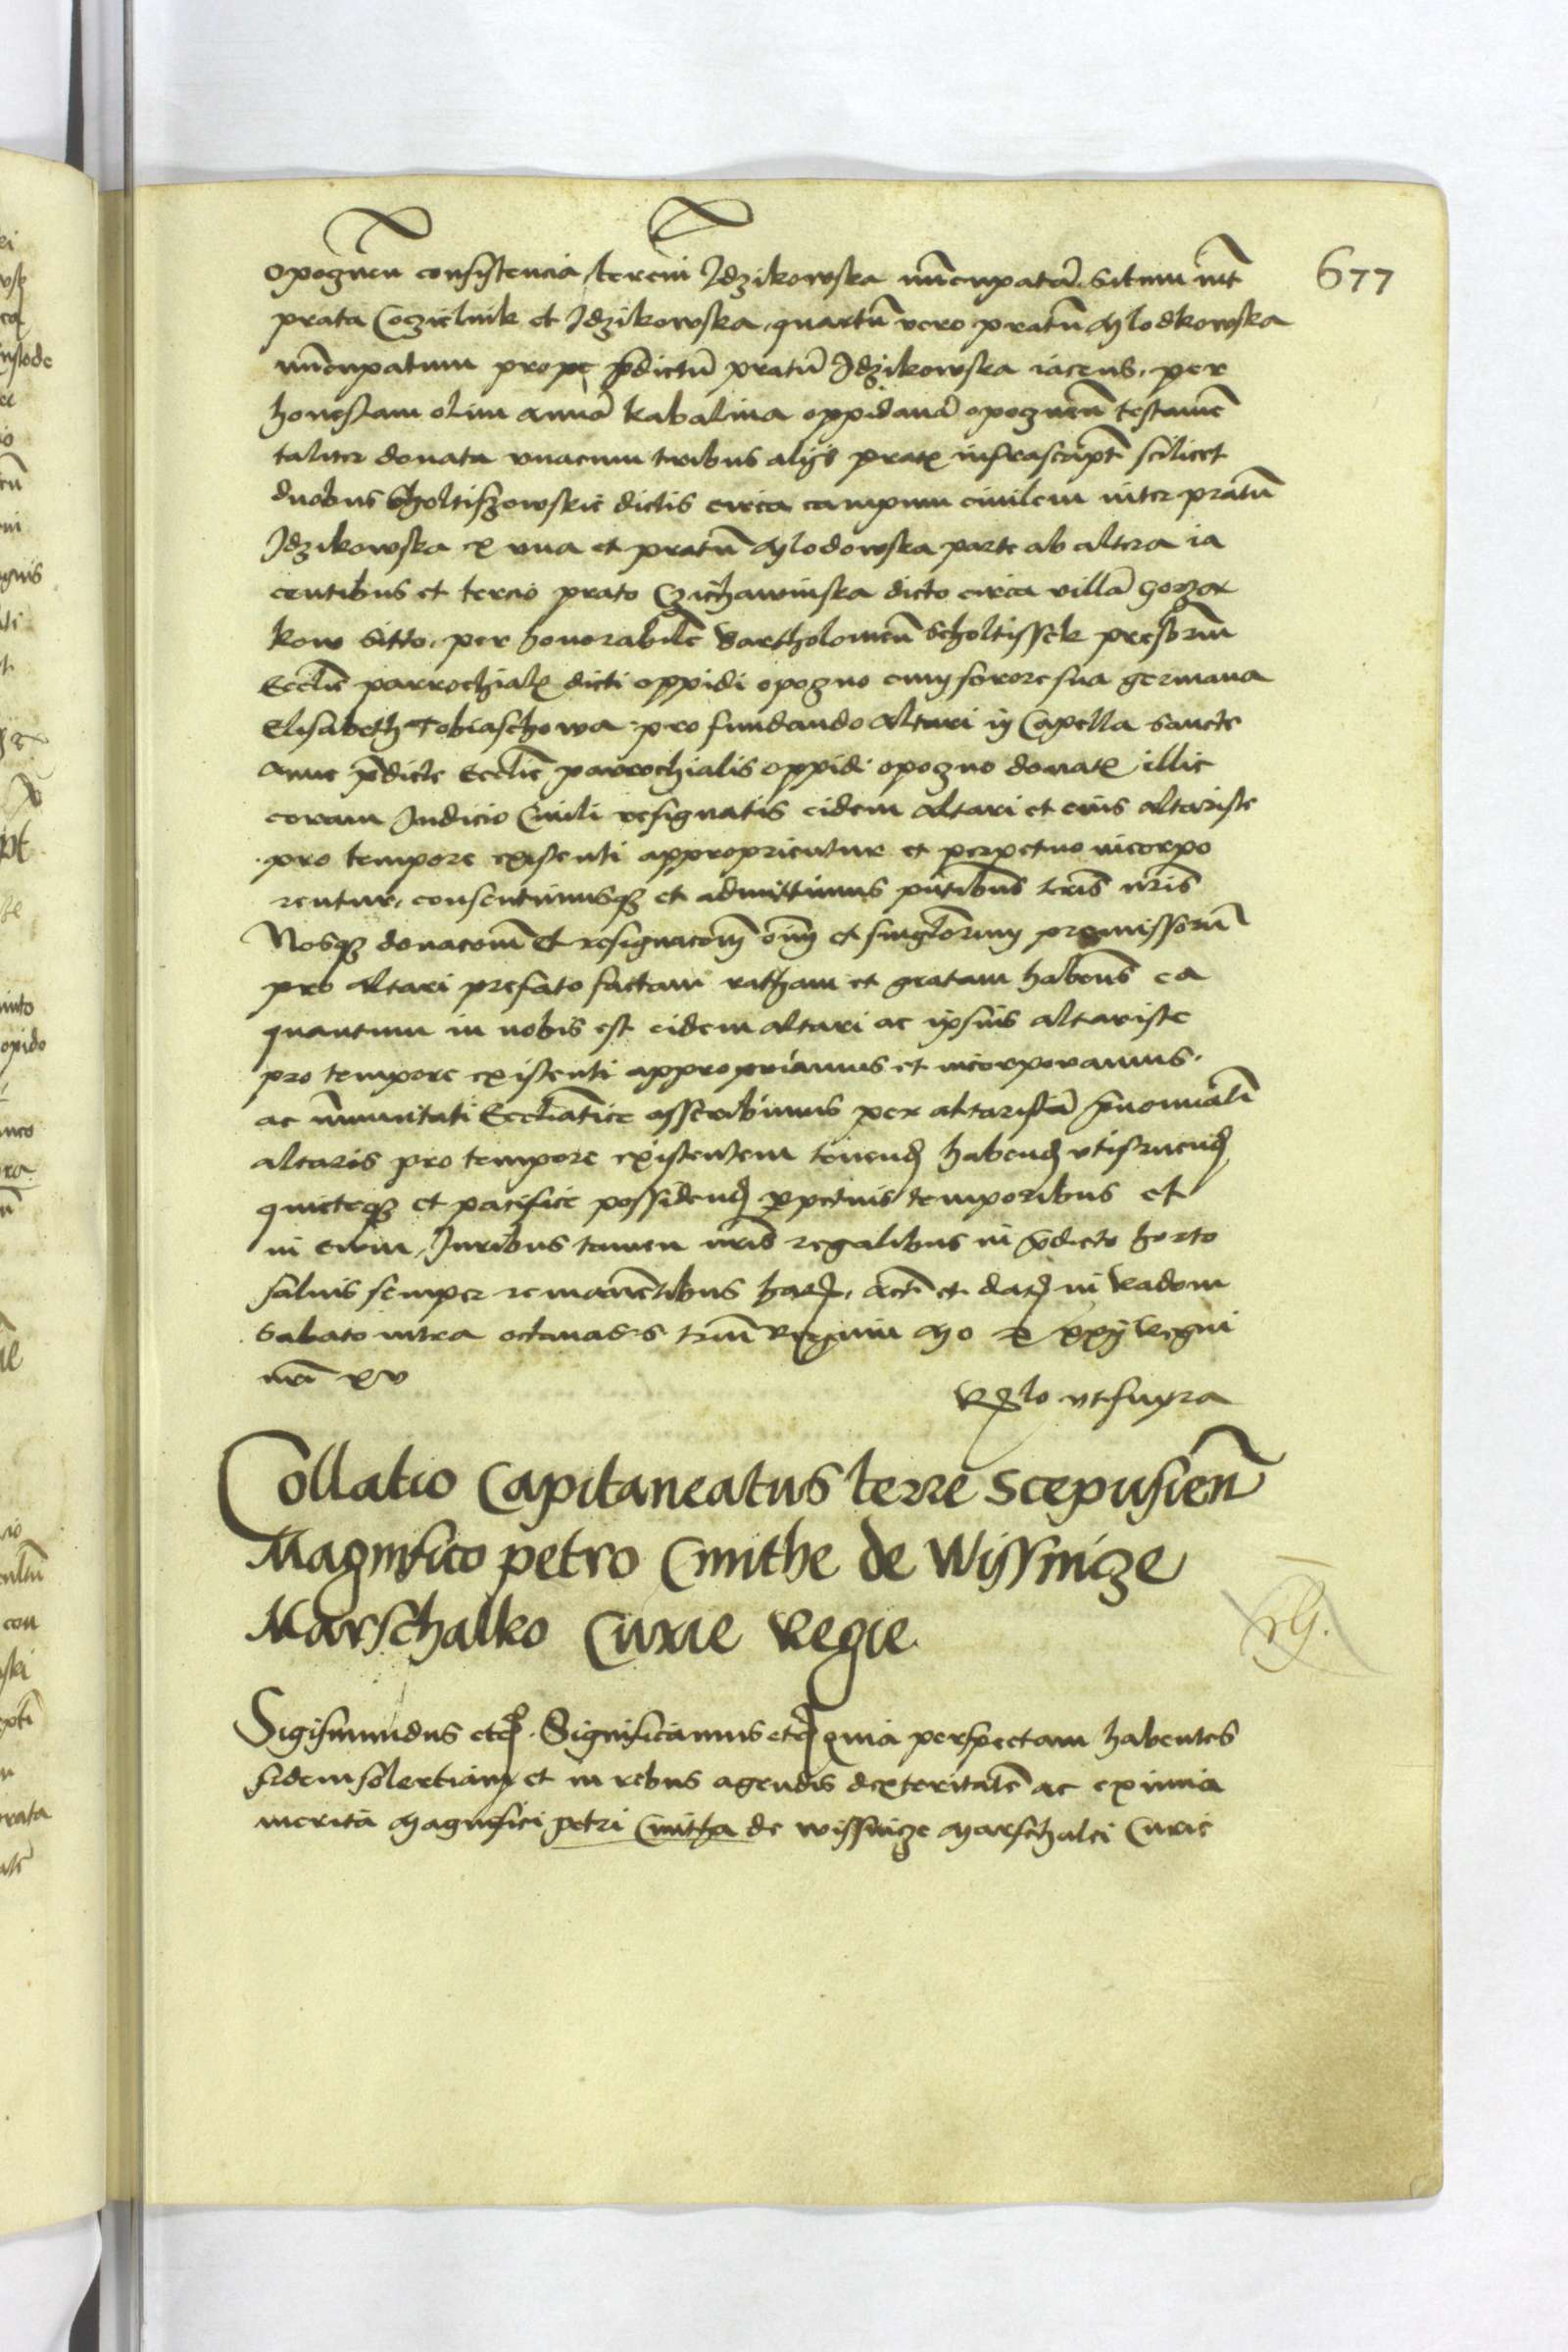 677
opognen̄ consistencia, terciū Idzikowska nūcupatā situm int̄
prata Coczielnik et Idzikowska, quartū vero pratū Mlodkowska
nūcupatum prope p̄dictū pratū Idzikowska iacens, per
honestam olim Annā kabalina oppidanā opognen̄ testamē
taliter donata vnacum tribus alijs prat̄ infrascript̄ scilicet
duobus Scholtiszowskie dictis circa campum ciuilem inter pratū
Idzikowska ex vna et pratū Mlodowska parte ab altera ia
centibus et tercio prato dicto circa villā
kow sitto, per honorabilē Bartholomeū Scholtissek presbrm̄
Eccl̄ie parrochial̄ dicti oppidi opogno cum sorore sua germana
Elisabeth Tobiaschowa pro fundando altari in Capella sancte
Anne p̄dicte Eccl̄ie parrochialis oppidi opogno donat̄ illic
coram Iudicio Ciuili resignatis eidem altari et eius altariste
pro tempore existenti approprientur et perpetuo incorpo
rentur, consentimusq₃ et admittimus pn̄tibus lr̄is nr̄is
Nosq₃ donacōm et resignacōm oīm et singlōrum premissorū
pro altari prefato factam ratham et gratam habent̄s ea
quantum in nobis est eidem altari ac ipsius altariste
pro tempore existenti appropriamus et incorporamus,
ac īmunitati Eccl̄iatice asscribimus per altaristā p̄nomīati
altaris pro tempore existentem tenend̄ habend̄ vtifruend̄
quieteq₃ et pacifice possidend̄ ꝑpetuis temporibus et
in ewm, Iuribus tamen nr̄is regalibus in p̄dicto horto
saluis semper remanētibus har₃, Act̄ et dat̄ in Radom
Sabato intra octauas s triū Regum Mo d xxij Regni
nr̄i xv
R̄lo vt supra
Collatio Capitaneatus terre Scepusien̄
Magnifico petro Cmithe de Wissnicze
Marschalko Curie Regie
Sigismundus etc̄. Significamus etc̄ quia perspectam habentes
fidem solertiam et in rebus agendis dexteritatē ac eximia
merita Magnifici petri Cmitha de wissnicze Marschalci Curie